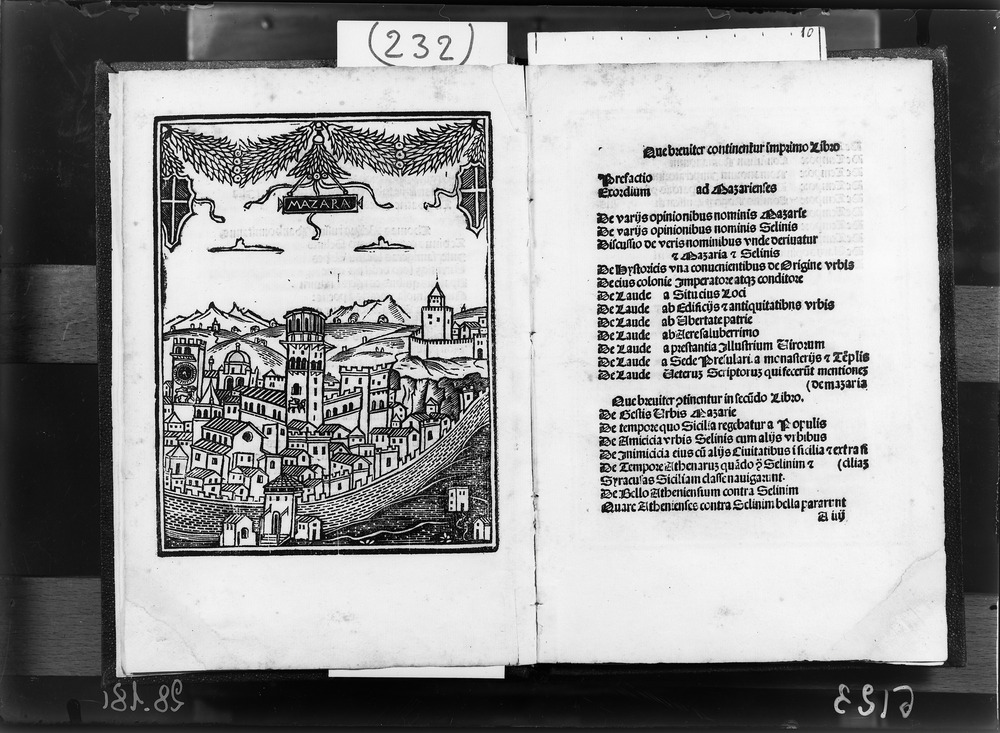 (232)
10
MAZARA
Que breuiter continentur imprimo Libro
Prefactio
Exordium ad Mazarienses
De varijs opinionibus nominis Mazarie
De varijs opinionibus nominis Selinis
Discussio de veris nominibus vnde deriuatur
⁊ Mazaria ⁊ Selinis
De hystoricis vna conuenientibus de Origine vrbis
De eius colonie Imperatore atqʒ conditore
De Laude a Situ eius Loci
De Laude ab Edificijs ⁊ antiquitatibus vrbis
De Laude ab Vbertate patrie
De Laude ab Aere saluberrimo
De Laude a prestantia Jllustrium Virorum
De Laude a Sede Presulari. a monasterijs ⁊ Tēplis
De Laude Veteruʒ Scriptoruʒ qui fecerūt mentioneʒ
(de mazaria
Que breuiter ꝯtinentur in secūdo Libro.
De Gestis Vrbis Mazarie
De tempore quo Sicilia regebatur a Populis
De Amicicia vrbis Selinis cum alijs vrbibus
De Inimicicia eius cū alijs Ciuitatibus i sicilia ⁊ extra si
De Tempore Athenaruʒ quādo Selinim ⁊ (ciliaʒ
Syracusas Siciliam classe nauigarunt.
De Bello Atheniensium contra Selinim
Quare Athenienses contra Selinim bella pararunt
A iiij
28.181
6123